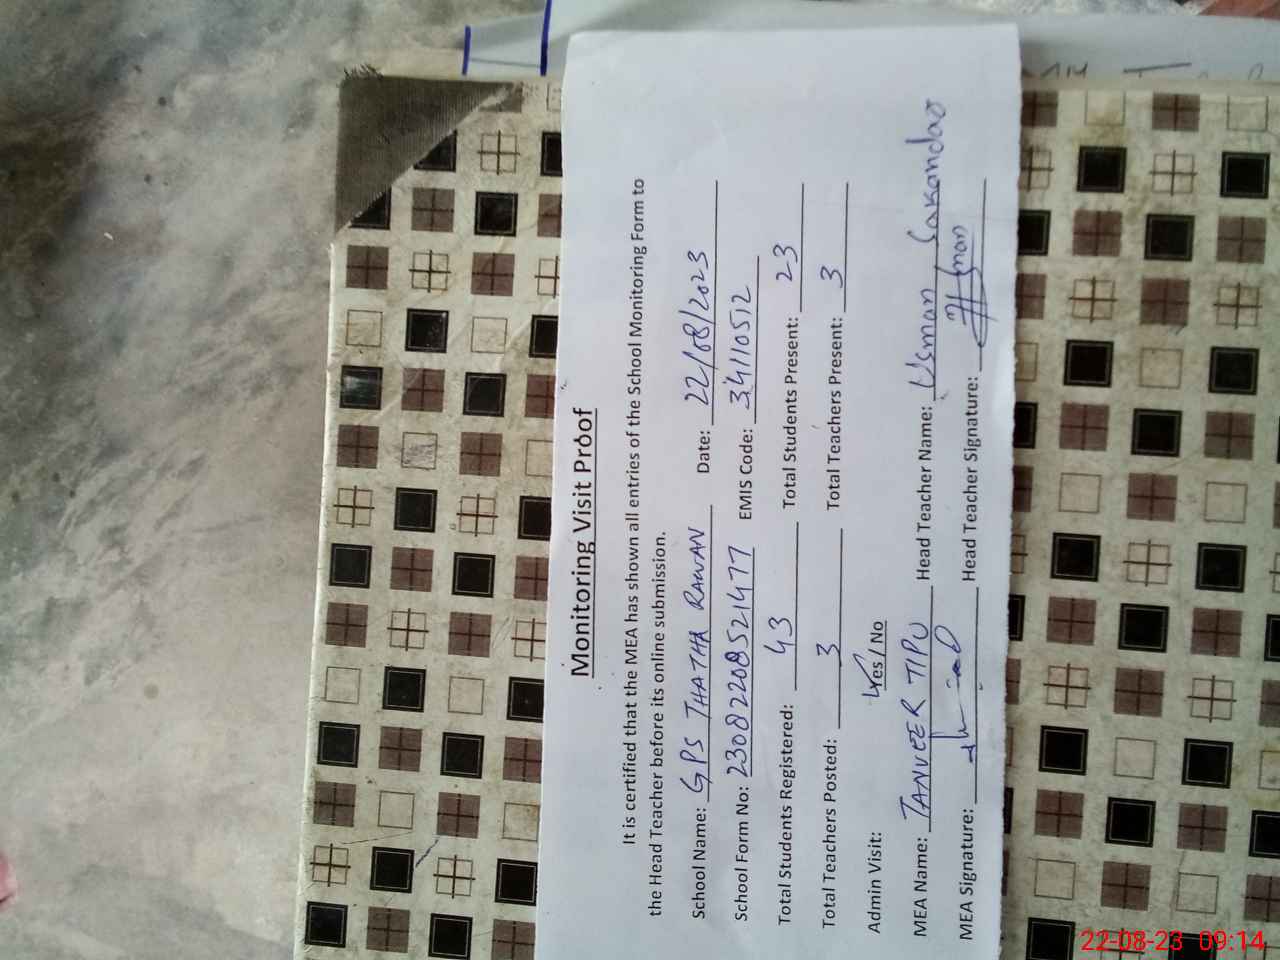 Monitoring Visit Proof
It is certified that the MEA has shown all entries of the School Monitoring Form to
the Head Teacher before its online submission.
School Name: GPS THATHA RAWAN Date: 22/08/2023
School Form No: 23082208521477 EMIS Code: 34110512
Total Students Registered: 43 Total Students Present: 23
Total Teachers Posted: 3 Total Teachers Present: 3
Admin Visit: Yes / No
MEA Name: TANVEER TIPU Head Teacher Name: Usman Sakandar
MEA Signature: Head Teacher Signature: Usman
22-08-23 09:14